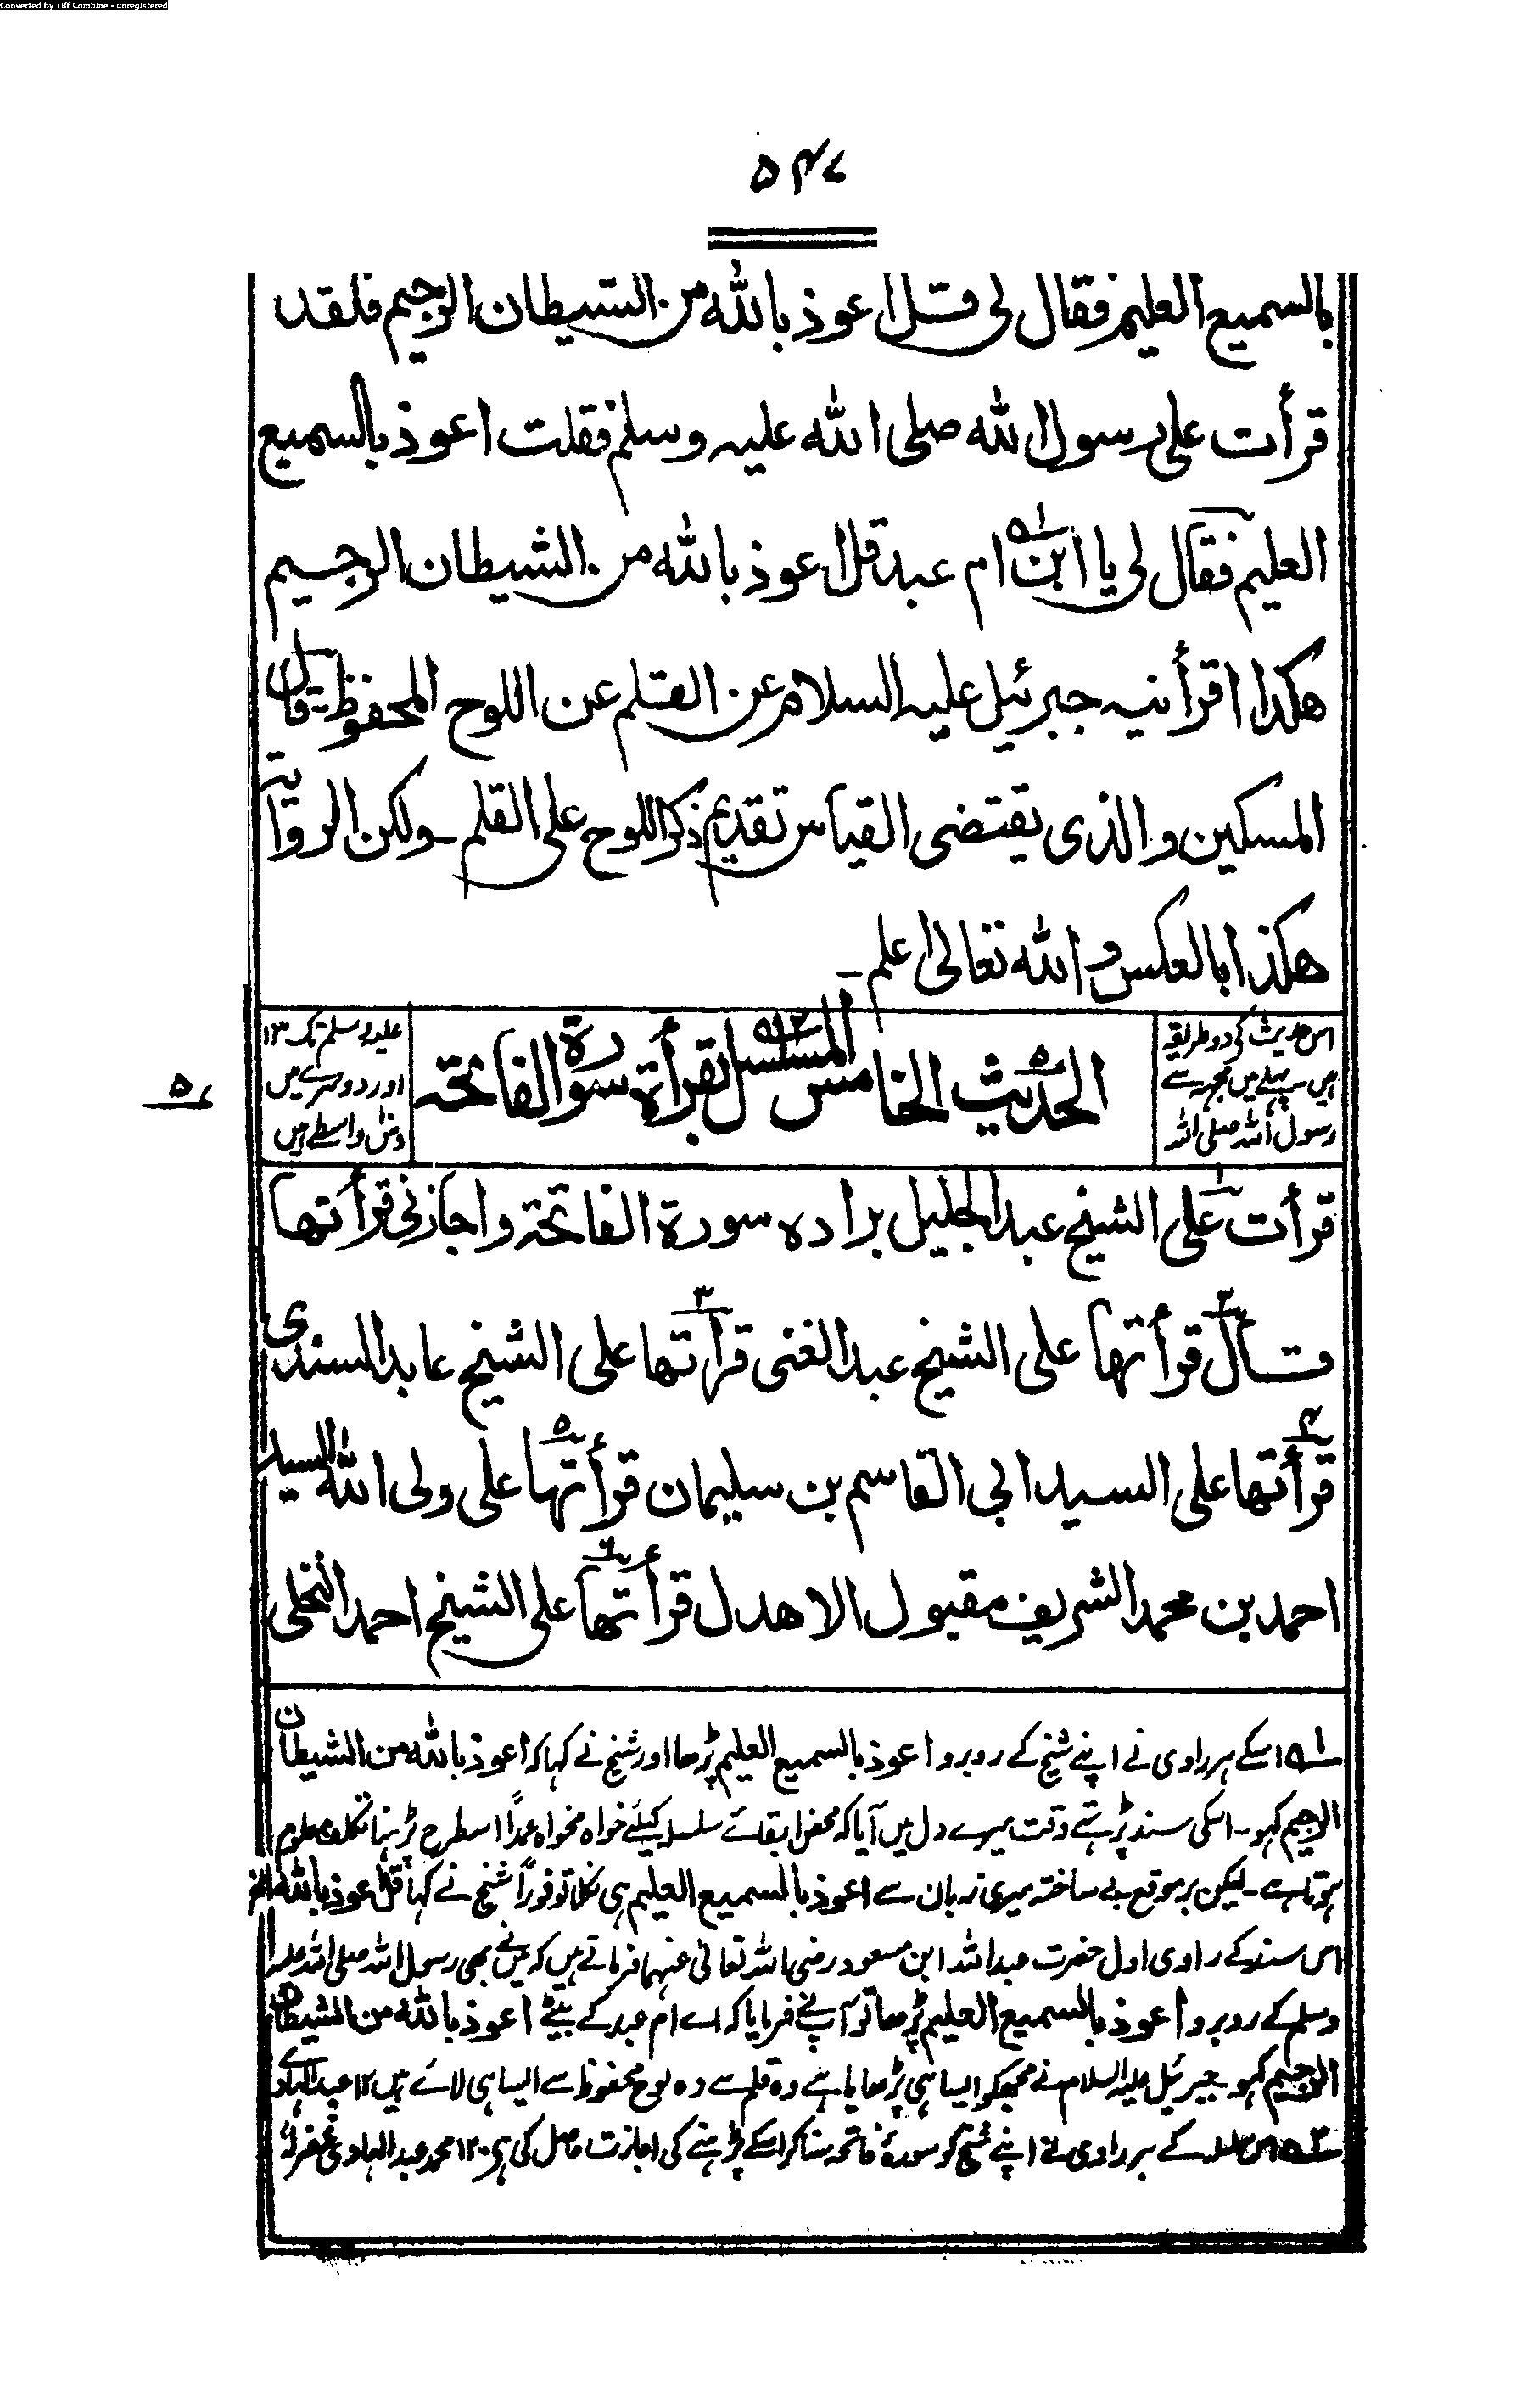 Converted by Tiff Combine - unregistered
۵۴۷
بالسميع العليم فقال لى قل اعوذ بالله من الشيطان الرجيم فلقد
قرأت على رسول الله صلى الله عليه وسلم فقلت اعوذ بالسميع
العليم فقال لى يا ابن ام عبد قل اعوذ بالله من الشيطان الرجيم
هكذا اقرأنيه جبرئيل عليه السلام عن القلم عن اللوح المحفوظ ـ قال
المسكين والذى يقتضى القياس تقديم ذكر اللوح على القلم ـ ولكن الرواية
هكذا بالعكس والله تعالى اعلم ـ
اس حدیث کی دو طریقہ
ہیں پہلے میں مجھ سے
رسول اللہ صلی اللہ
الحديث الخامس المسلسل بقرأة سورة الفاتحه
علیہ وسلم تک ۱۳
اور دوسرے میں
دس واسطے ہیں
۵۷
قرأت على الشيخ عبد الجليل براده سورة الفاتحة واجازنى قرأتها
قال قرأتها على الشيخ عبد الغنى قرأتها على الشيخ عابد السندى
قرأتها على السيد ابى القاسم بن سليمان قرأتها على ولى الله السيد
احمد بن محمد الشريف مقبول الاهدل قرأتها على الشيخ احمد النخلى
۱؎ اسکے ہر راوی نے اپنے شیخ کے روبرو اعوذ بالسمیع العلیم پڑھا اور شیخ نے کہا کہ اعوذ باللہ من الشیطان
الرجیم کہو۔ اسکی سند پڑہتے وقت میرے دل میں آیا کہ محض ابقائے سلسلہ کیلئے خواہ مخواہ عمداً اسطرح پڑہنا تکلف معلوم
ہوتا ہے۔ لیکن بر موقع بے ساختہ میری زبان سے اعوذ بالسمیع العلیم ہی نکلا تو فوراً شیخ نے کہا قل اعوذ باللہ الخ
اس سند کے راوی اول حضرت عبد اللہ ابن مسعود رضی اللہ تعالیٰ عنہما فرماتے ہیں کہ مینے بھی رسول اللہ صلی اللہ علیہ
وسلم کے روبرو اعوذ بالسمیع العلیم پڑھا تو آپنے فرمایا کہ اے ام عبد کے بیٹے اعوذ باللہ من الشیطان
الرجیم کہو۔ جبرئیل علیہ السلام نے مجھکو ایسا ہی پڑھایا ہے وہ قلم سے وہ لوح محفوظ سے ایسا ہی لائے ہیں ۱۲ عبد الہادی
۲؎ اس کے ہر راوی نے اپنے شیخ کو سورۂ فاتحہ سنا کر اسکے پڑہنے کی اجازت حاصل کی ہی ۱۲۰ محمد عبد الہادی غفرلہٗ